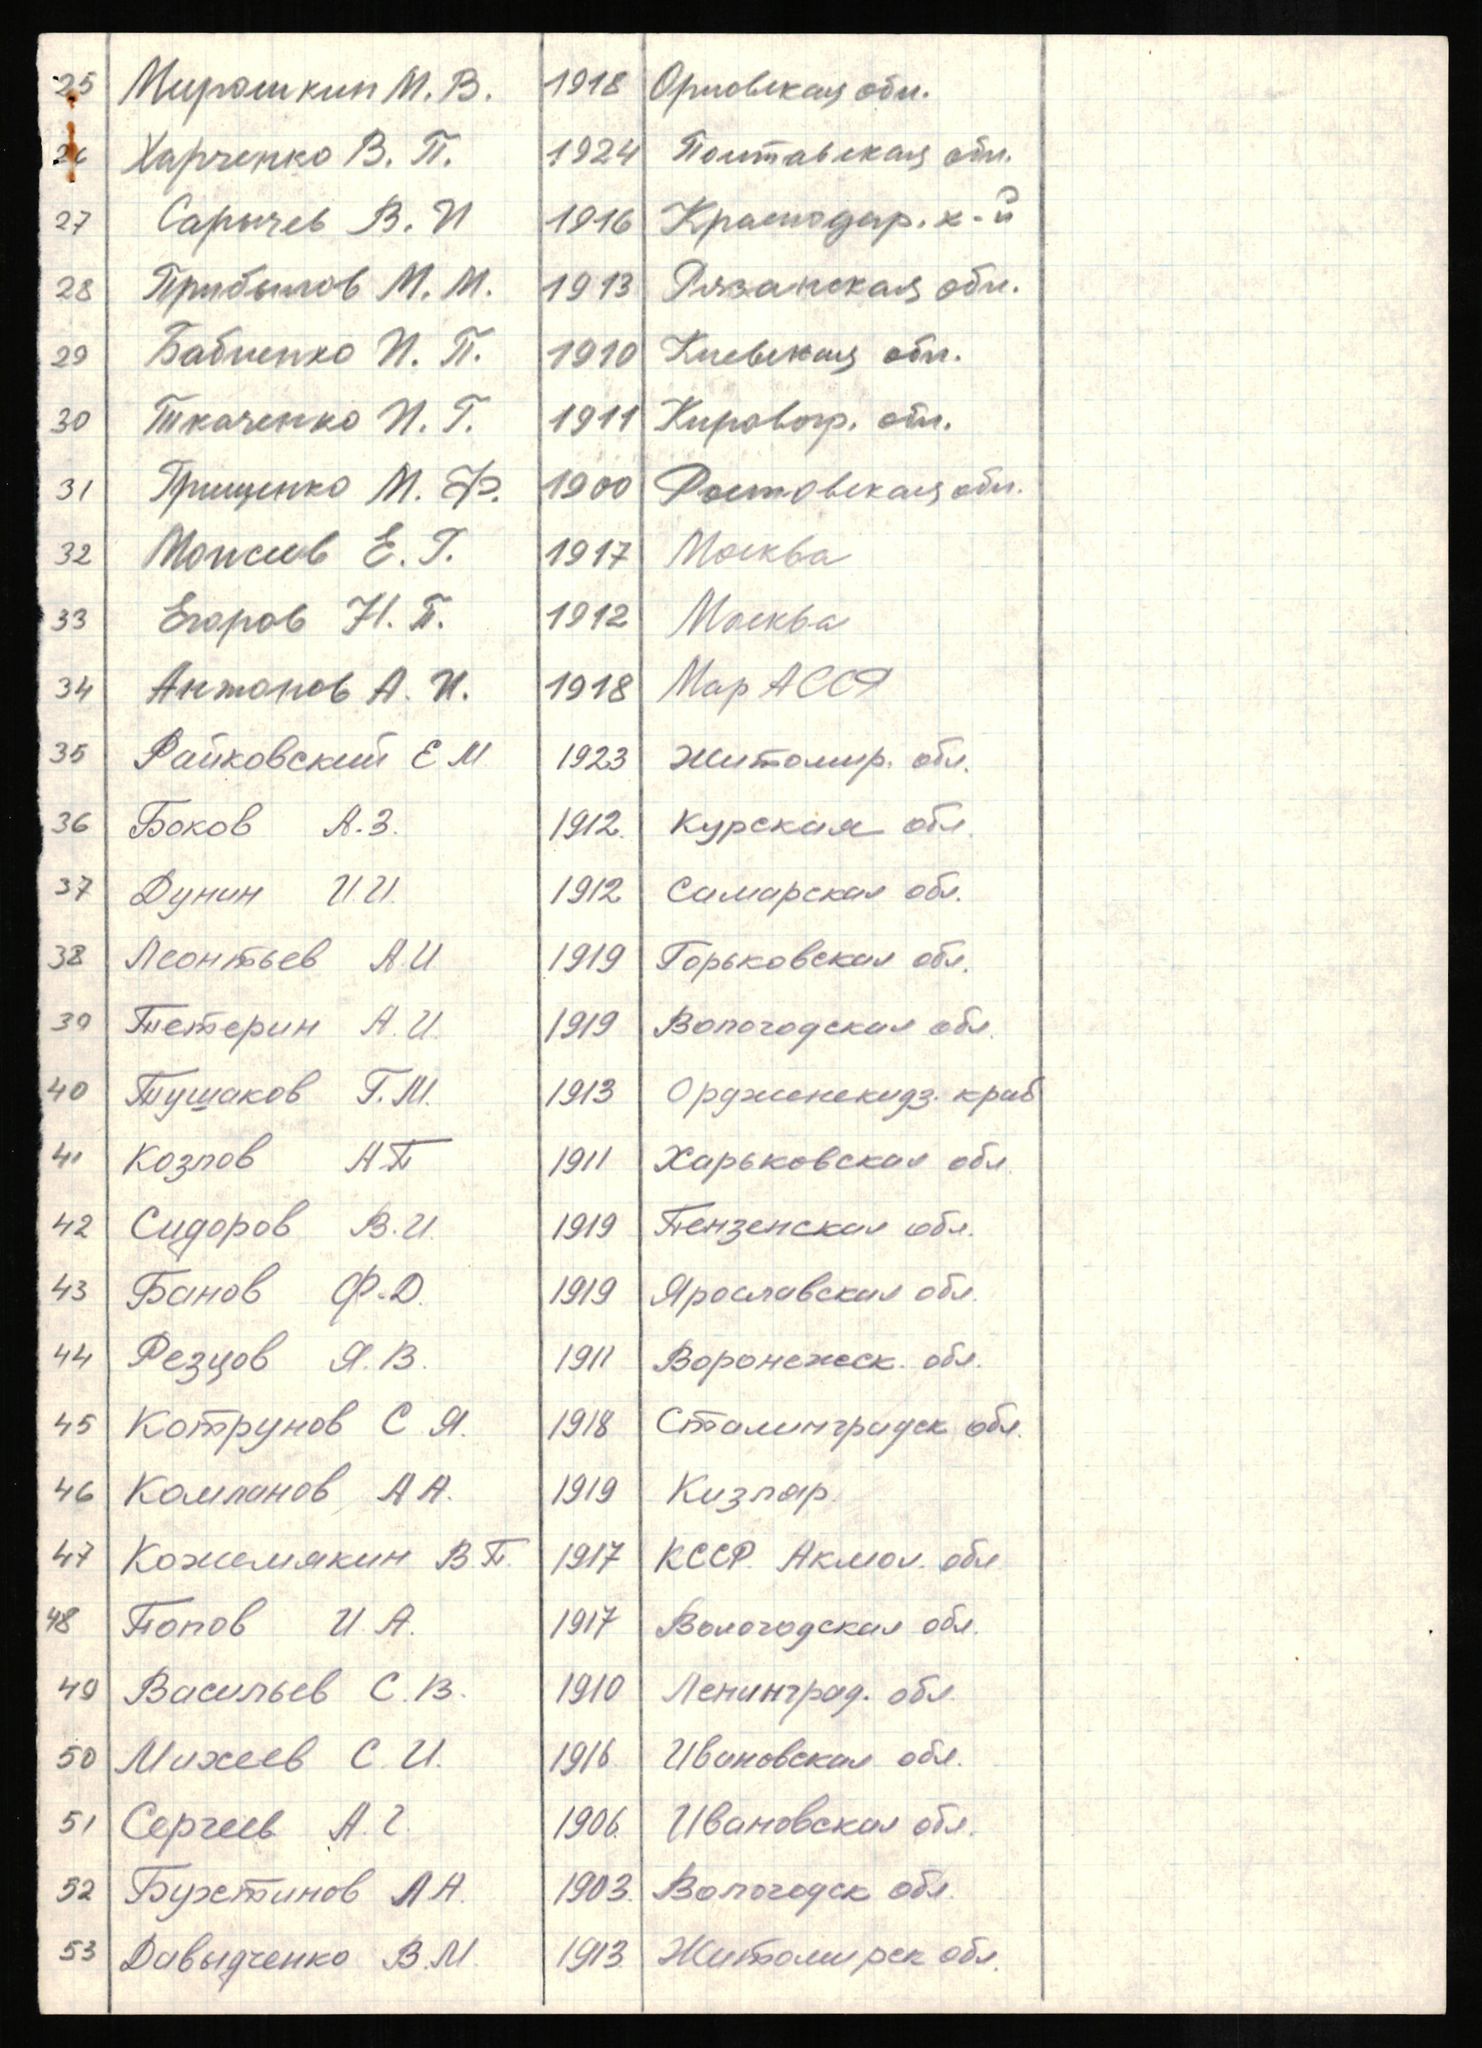 25 Мирошкин М. В. 1918 Орловская обл.
26 Харченко В. П. 1924 Полтавская обл.
27 Сарычев В. И 1916 Краснодар. к-й
28 Прибылов М. М. 1913 Рязанская обл.
29 Бабиенко И. П. 1910 Киевская обл.
30 Ткаченко И. Г. 1911 Кировогр. обл.
31 Грищенко М. Ф. 1900 Ростовская обл.
32 Моисеев Е. Г. 1917 Москва
33 Егоров Н. П. 1912 Москва
34 Антонов А. И. 1918 Мар АССР
35 Райковский Е М 1923 Житомир. обл.
36 Боков А.З. 1912. Курская обл
37 Дунин И.И. 1912 Самарская обл.
38 Леонтьев А.И 1919 Горьковская обл.
39 Тетерин А.И. 1919 Вологодская обл.
40 Тушаков Г.М. 1913 Ордженекидз. край
41 Козлов А П 1911 Харьковская обл
42 Сидоров В.И. 1919 Пензенская обл.
43 Банов Ф.Д. 1919 Ярославская обл.
44 Резцов Я.В. 1911 Воронежск. обл.
45 Котрунов С Я. 1918 Сталинградск обл.
46 Компанов А А. 1919 Кизляр.
47 Кожемякин В П. 1917 КССР. Акмол. обл
48 Попов И А. 1917 Вологодская обл.
49 Васильев С.В. 1910 Ленинград. обл.
50 Михеев С.И. 1916. Ивановская обл.
51 Сергеев А.Г. 1906. Ивановская обл.
52 Бухтинов А А. 1903. Вологодск обл.
53 Давыдченко В.М. 1913 Житомирск обл.